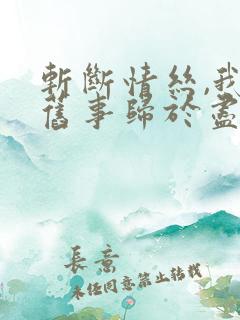 斬斷情絲,我
舊事歸於盡
長意
未经同意禁止转载